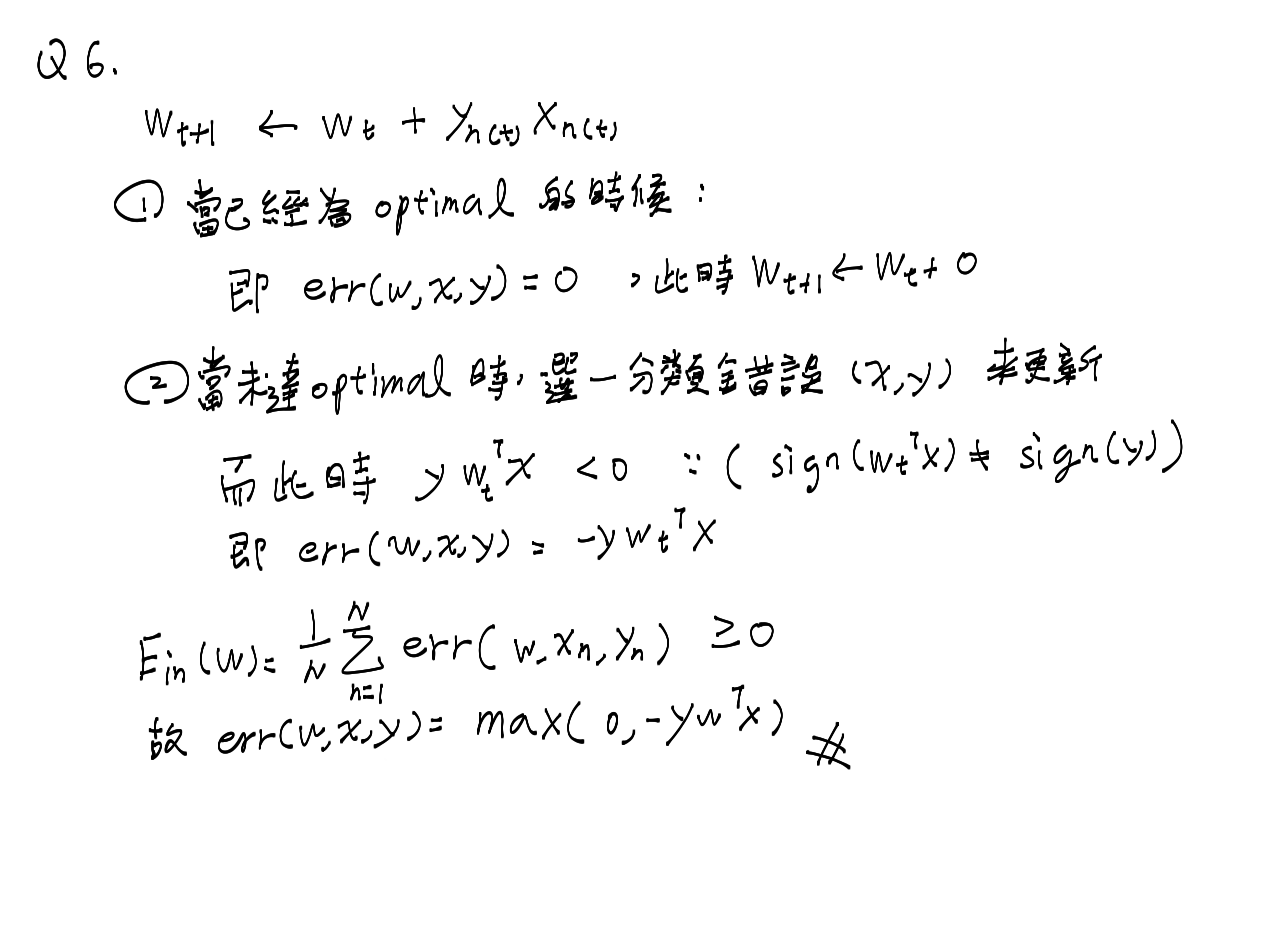 Q6.
W_{t+1} ← W_t + y_{n(t)} X_{n(t)}
① 當已經為 optimal 的時候:
即 err(w,x,y) = 0 ,此時 W_{t+1} ← W_t + 0
② 當未達 optimal 時,選一分類錯誤 (x,y) 來更新
而此時 y w_t^T x < 0 ∵ ( sign(w_t^T x) ≠ sign(y))
即 err(w,x,y) = -y w_t^T x
E_{in}(w) = \frac{1}{N} \sum_{n=1}^{N} err( w, x_n, y_n) ≥ 0
故 err(w,x,y) = max( 0, -y w^T x) #